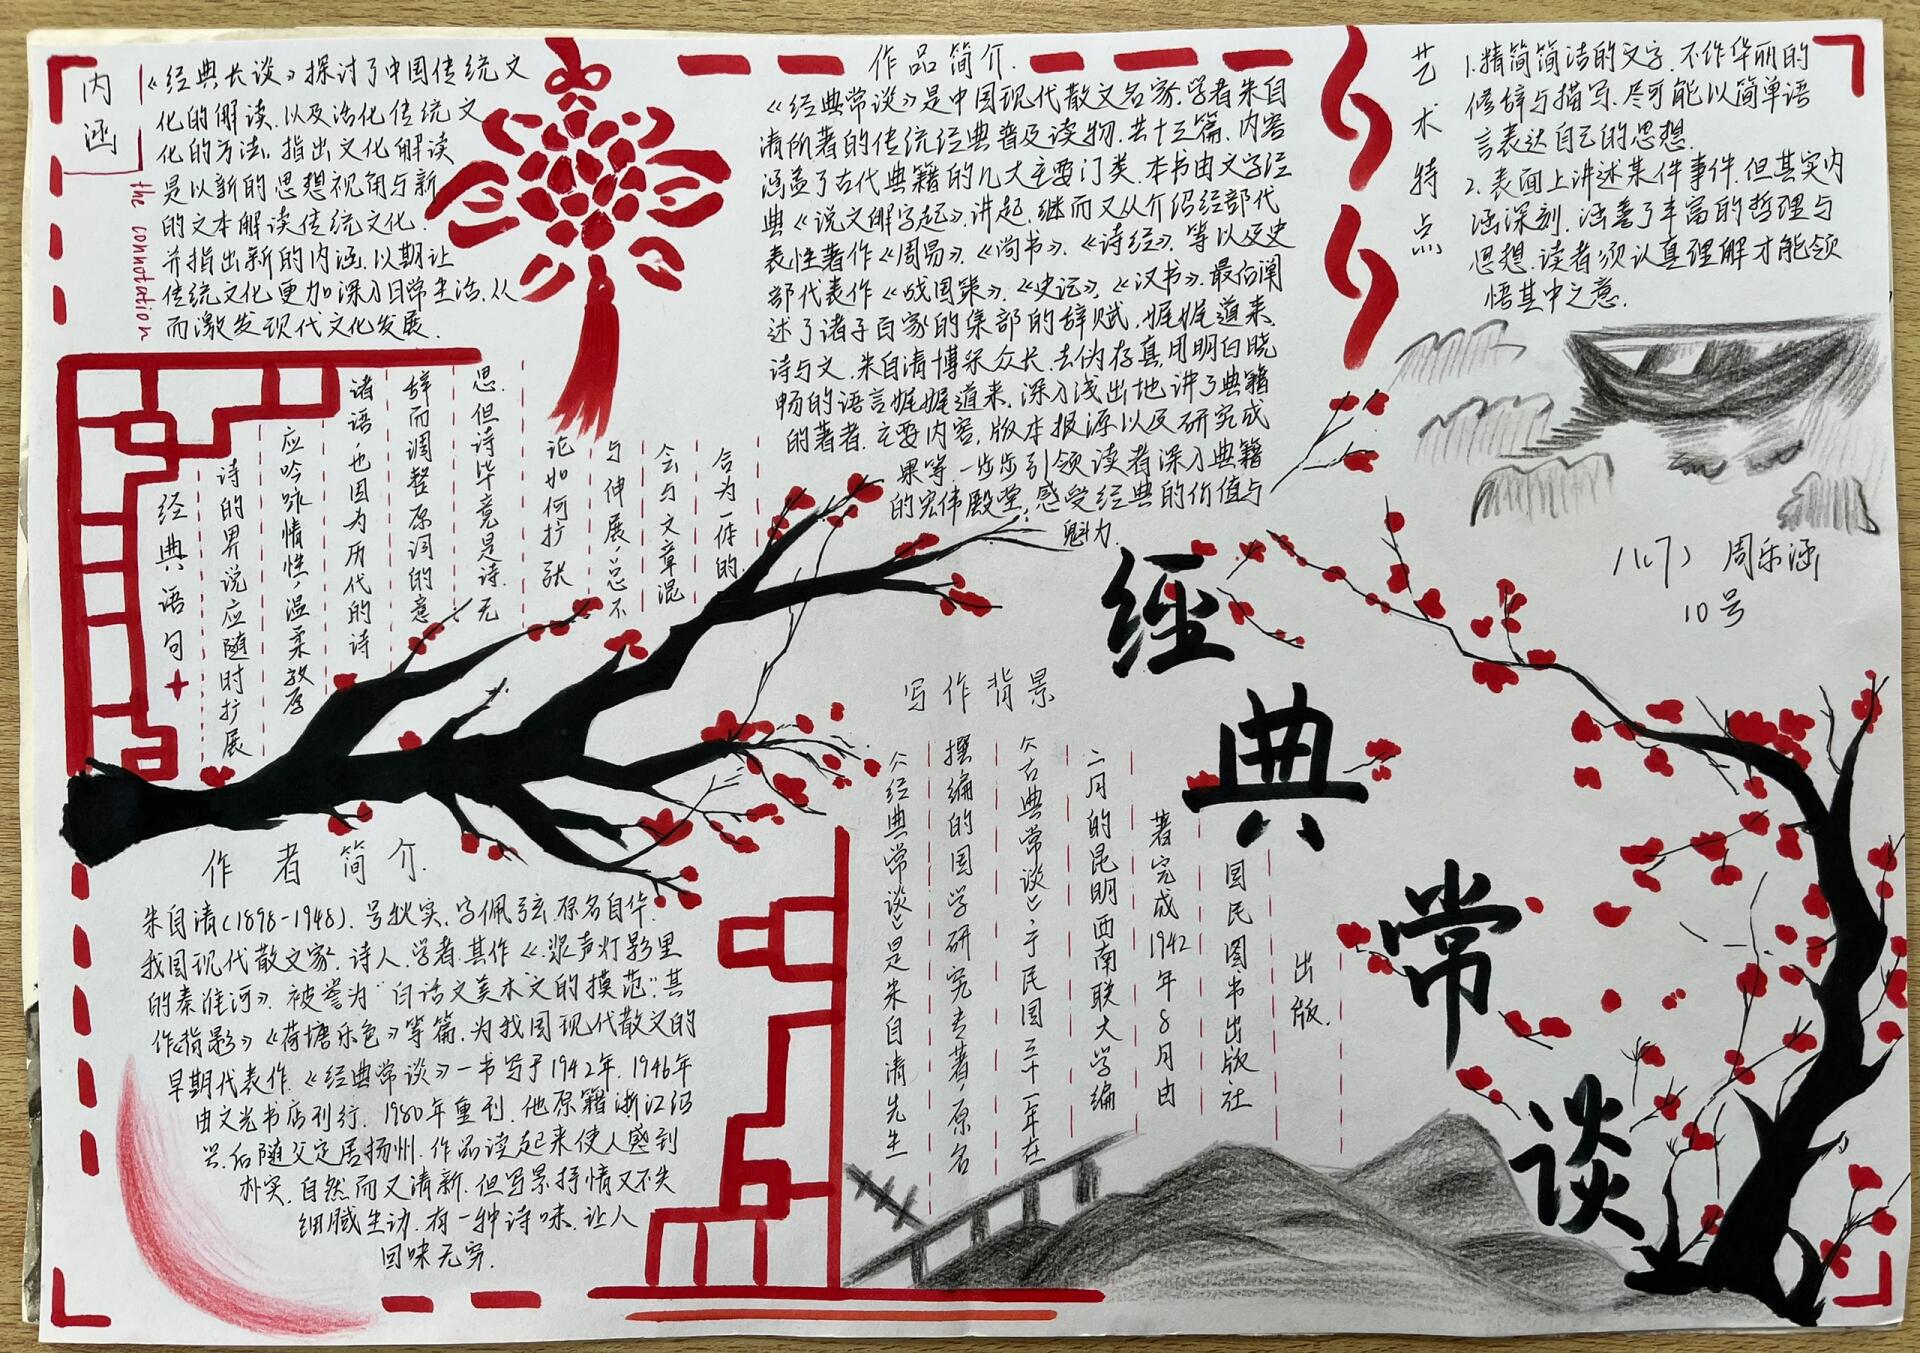 内涵
the connotation
《经典长谈》探讨了中国传统文
化的解读.以及活化传统文
化的方法.指出文化解读
是以新的思想视角与新
的文本解读传统文化.
并指出新的内涵.以期让
传统文化更加深入日常生活.从
而激发现代文化发展.
作品简介.
《经典常谈》是中国现代散文名家.学者朱自
清所著的传统经典普及读物.共十三篇.内容
涵盖了古代典籍的几大主要门类.本书由文字经
典《说文解字起》.讲起.继而又从介绍经部代
表性著作《周易》.《尚书》.《诗经》.等以及史
部代表作《战国策》.《史记》.《汉书》.最后阐
述了诸子百家的集部的辞赋.娓娓道来.
诗与文.朱自清博采众长.去伪存真.用明白晓
畅的语言娓娓道来.深入浅出地讲了典籍
的著者.主要内容.版本报源以及研究成
果等.一步步引领读者深入典籍
的宏伟殿堂.感受经典的价值与
魅力.
艺术特点
1.精简简洁的文字.不作华丽的
修辞与描写.尽可能以简单语
言表达自己的思想.
2.表面上讲述某件事件.但其实内
涵深刻.涵善了丰富的哲理与
思想.读者须认真理解才能领
悟其中之意.
八(7) 周乐涵
10号
经典语句
诗的界说应随时扩展
应吟咏情性,温柔敦厚
诸语,也因为历代的诗
辞而调整原词的意
思.但诗毕竟是诗.无
论如何扩张
与伸展,总不
会与文章混
合为一体的.
经典常谈
作者简介.
朱自清(1898-1948).号秋实.字佩弦.原名自华.
我国现代散文家.诗人.学者.其作《桨声灯影里
的秦淮河》.被誉为“白话文美术文的摸范”.其
作《背影》《荷塘乐色》等篇.为我国现代散文的
早期代表作.《经典常谈》一书写于1942年.1946年
由文光书店刊行.1980年重刊.他原籍浙江绍
兴.后随父定居扬州.作品读起来使人感到
朴实.自然而又清新.但写景抒情又不失
细腻生动.有一种诗味.让人
回味无穷.
写作背景
《经典常谈》是朱自清先生
撰编的国学研究专著,原名
《古典常谈》,于民国三十一年在
二月的昆明西南联大学编
著完成1942年8月由
国民图书出版社
出版.